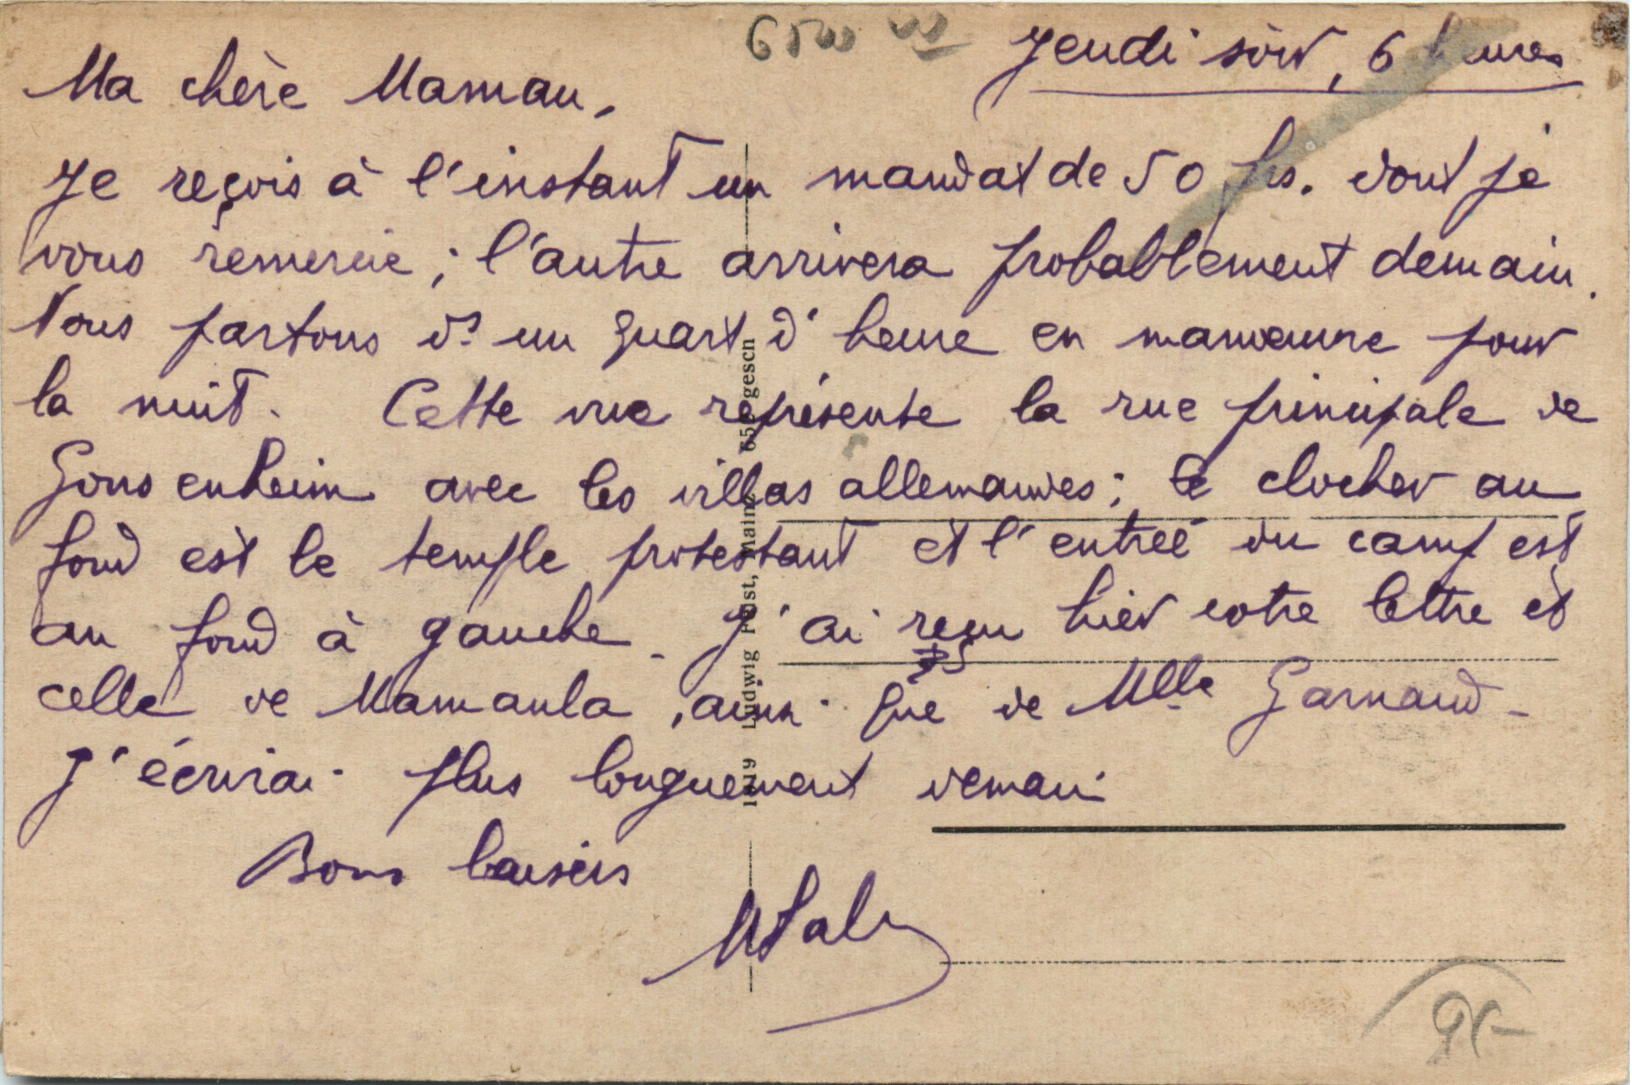 Jeudi soir, 6 heures
Ma chère Maman,
Je reçois à l'instant un mandat de 50 frs. dont je
vous remercie ; l'autre arrivera probablement demain.
Nous partons ds un quart d'heure en manoeuvre pour
la nuit. Cette vue représente la rue principale de
Gonsenheim avec les villas allemandes ; le clocher au
fond est le temple protestant et l'entrée du camp est
au fond à gauche. J'ai reçu hier votre lettre et
celle de Mamaula, ainsi que de Mlle Garnaud.
J'écrirai plus longuement demain
Bons baisers
1919 Ludwig Post, Mainz gesch